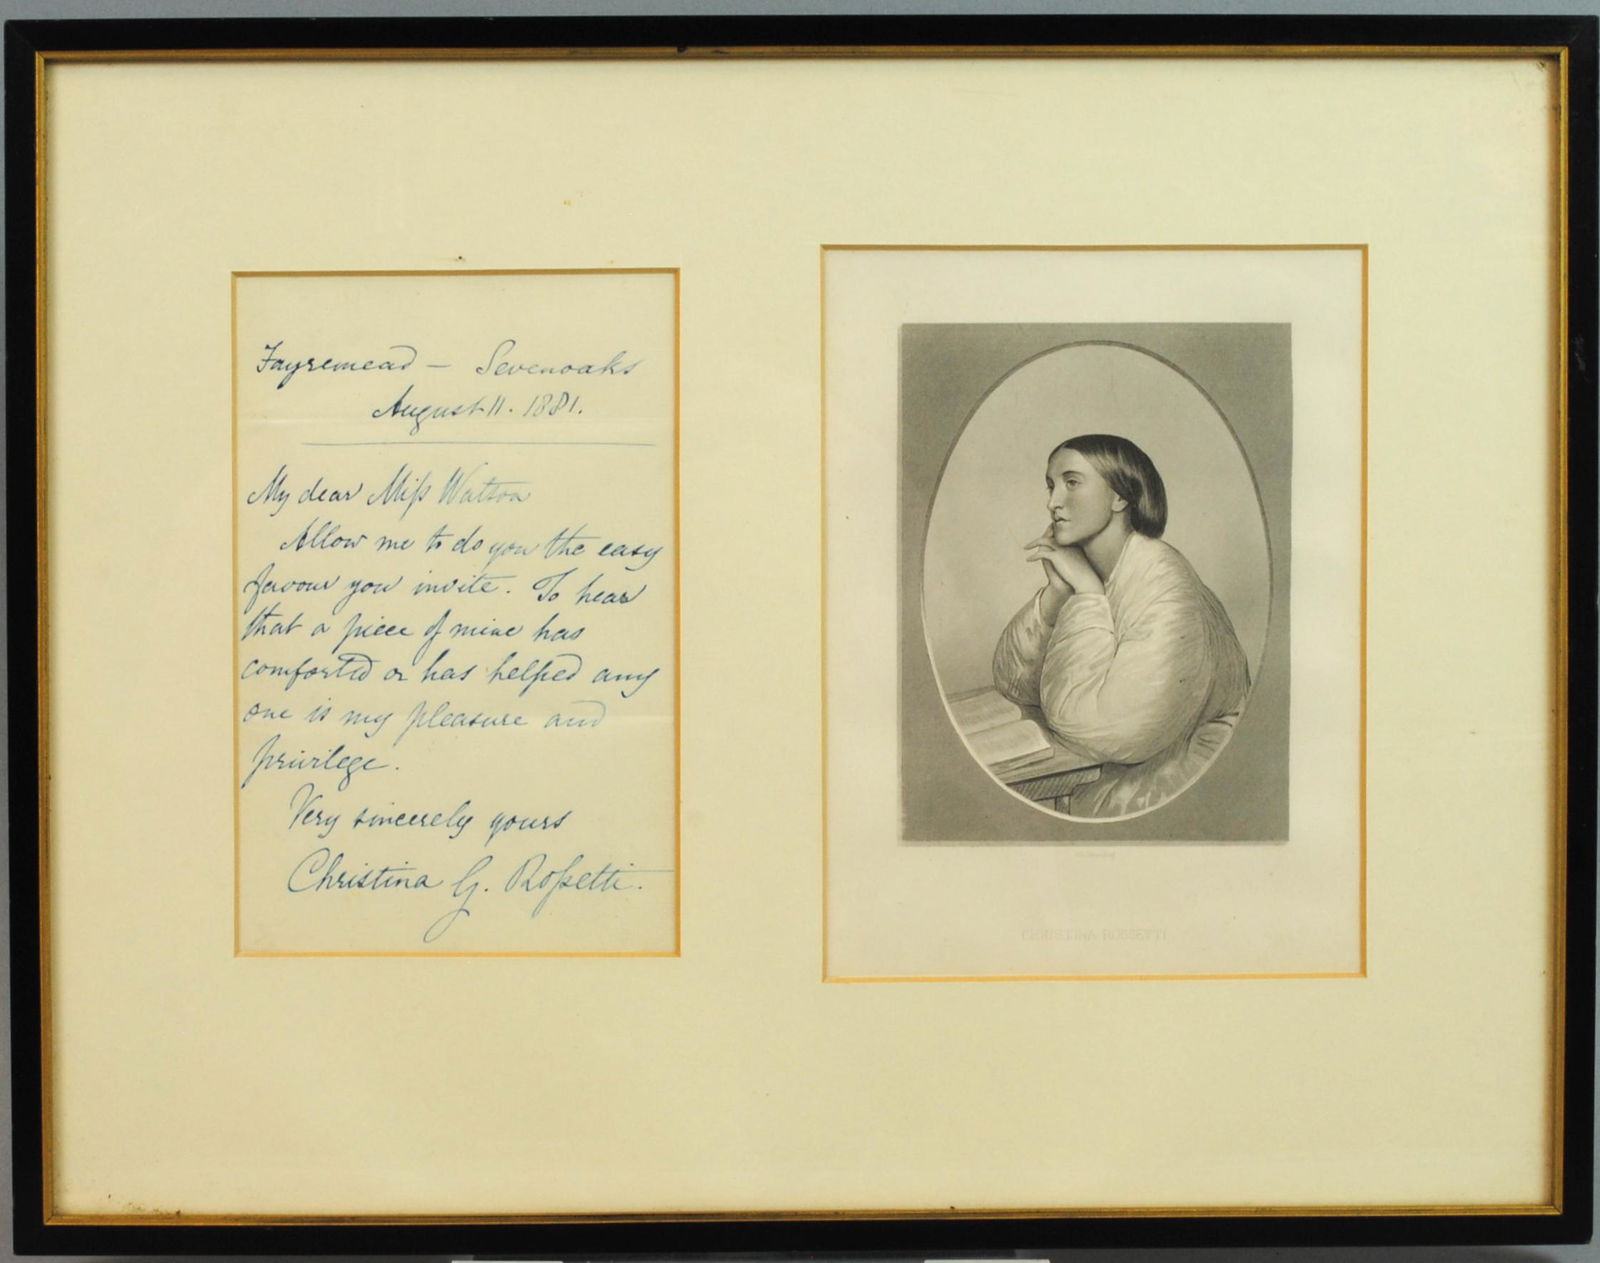 Fayremead – Sevenoaks
August 11. 1881.
My dear Miſs Watson
Allow me to do you the easy
favour you invite. To hear
that a piece of mine has
comforted or has helped any
one is my pleasure and
privilege.
Very sincerely yours
Christina G. Roſsetti.
CHRISTINA ROSSETTI